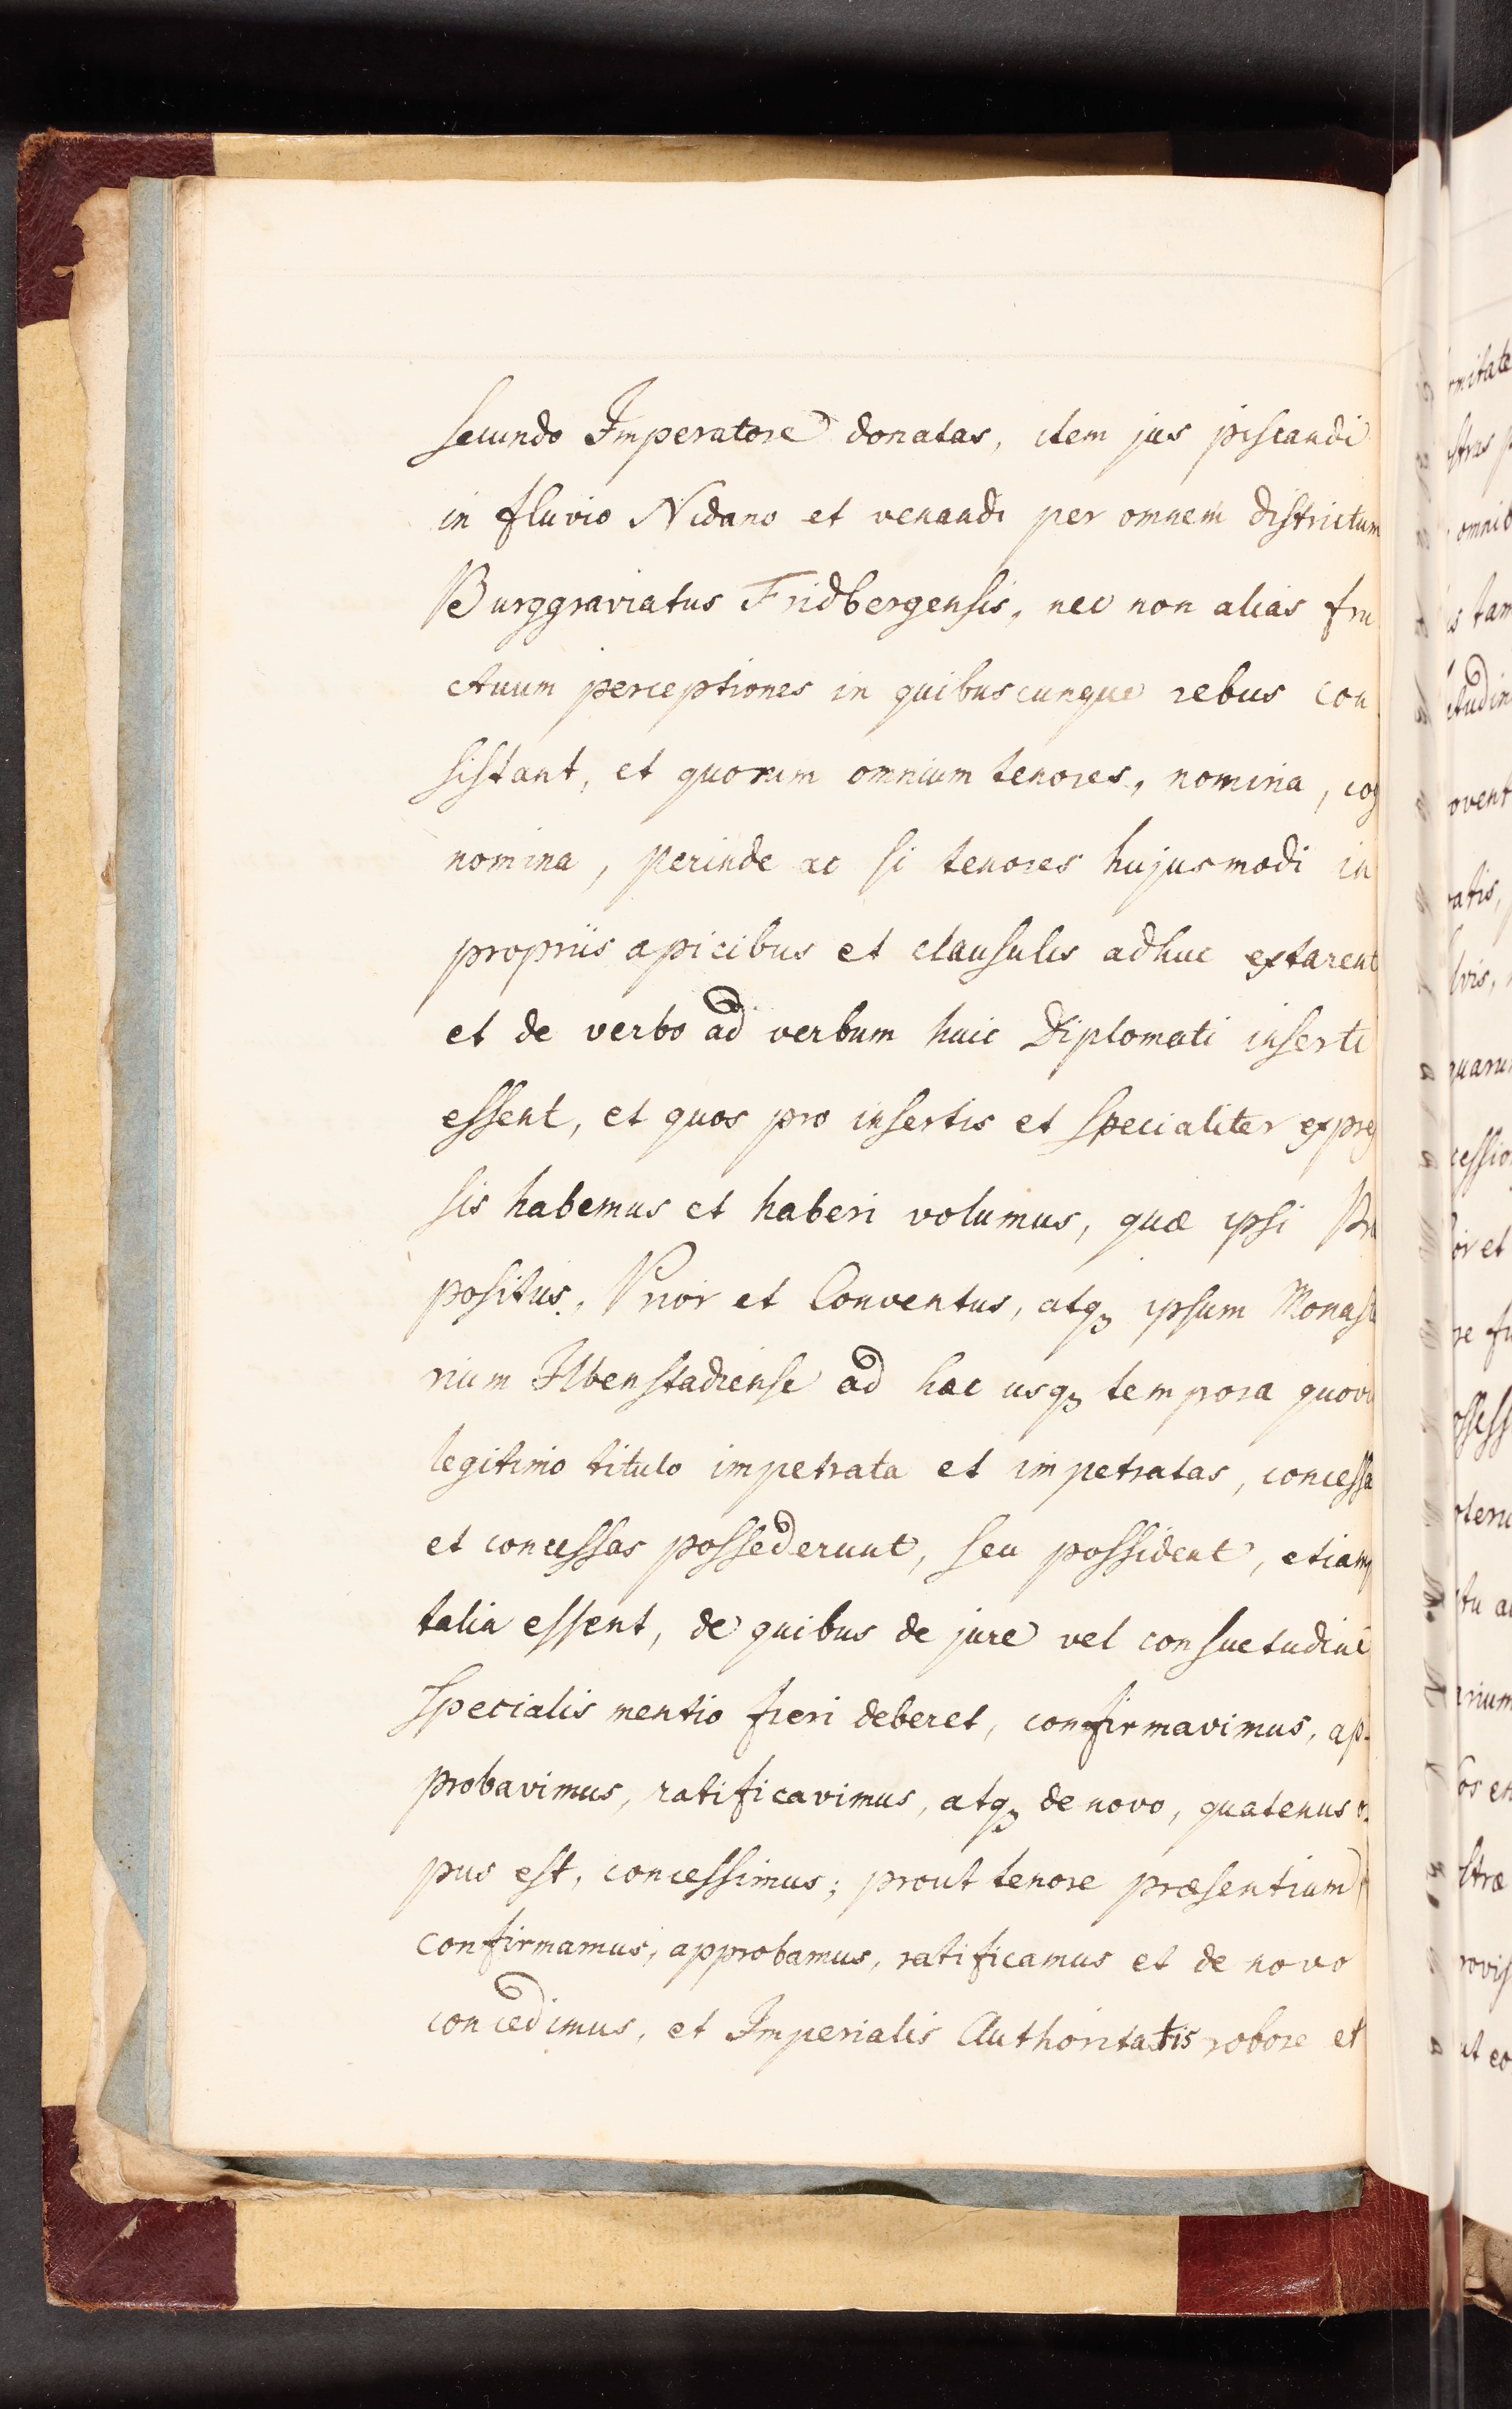 secundo Imperatore donatas, item jus piscandi
in fluvio Nidano et venandi per omnem districtum
Burggraviatus Fridbergensis, nec non alias fru
ctuum perceptiones in quibuscunque rebus con
sistant, et quorum omnium tenores, nomina, cog
nomina, perinde ac si tenores hujusmodi in
propriis apicibus et clausulis adhuc extarent
et de verbo ad verbum huic Diplomati inserti
essent, et quos pro insertis et specialiter expres
sis habemus et haberi volumus, quæ ipsi Præ
positus, Prior et Conventus, atqꝫ ipsum Monaste
rium Ilbenstadiense ad hac usqꝫ tempora quovis
legitimo titulo impetrata et impetratas, concessa
et concessas possederunt, seu possident, etiamsi
talia essent, de quibus de jure vel consuetudine
specialis mentio fieri deberet, confirmavimus, ap-
probavimus, ratificavimus, atqꝫ de novo, quatenus o-
pus est, concessimus; prout tenore præsentium
confirmamus, approbamus, ratificamus et de novo
concedimus, et Imperialis Authoritatis robore et